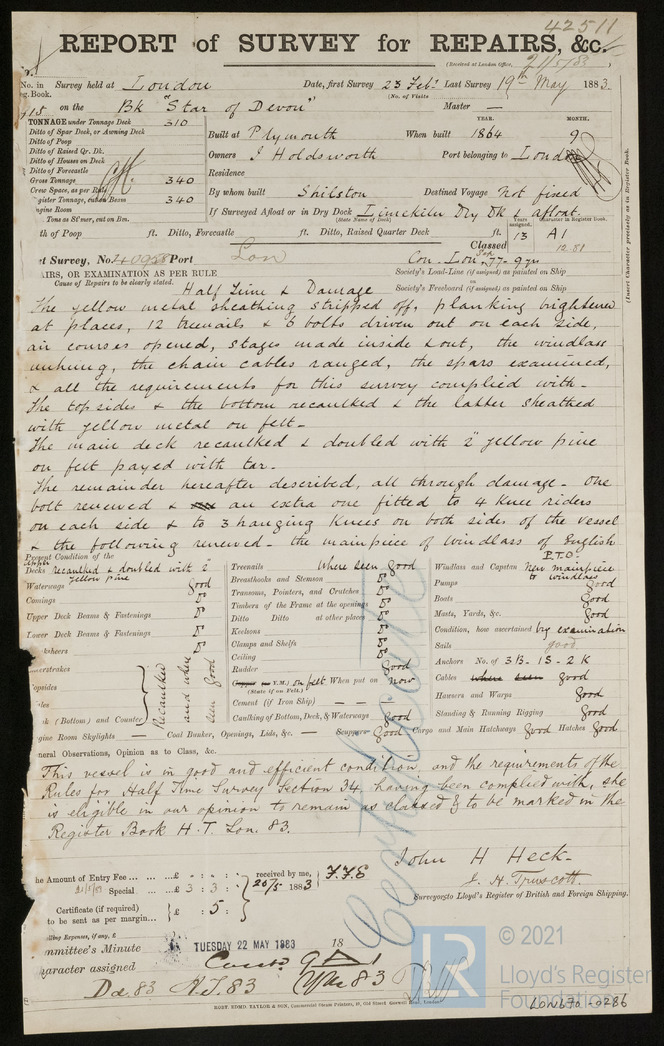 42511
REPORT of SURVEY for REPAIRS, &c.
(Received at London Office, 21/5/83)
No. in Survey held at London Date, first Survey 23 Feb? Last Survey 19th May 1883.
g. Book. (No. of Visits
on the Bk "Star of Devon" Master —
TONNAGE under Tonnage Deck 310
Ditto of Spar Deck, or Awning Deck
Ditto of Poop
Ditto of Raised Qr. Dk.
Ditto of Houses on Deck
Ditto of Forecastle
Gross Tonnage 340
Crew Space, as per Rule
gister Tonnage, cut on Beam 340
ngine Room
Tons as St'mer, cut on Bm.
YEAR. MONTH.
Built at Plymouth When built 1864 9
Owners J Holdsworth Port belonging to London
Residence
By whom built Shilston Destined Voyage Not fixed
If Surveyed Afloat or in Dry Dock Limekiln Dry Dk & afloat.
(State Name of Dock)
Years assigned. Character in Register Book.
13 A1
12.81
(Insert Character precisely as in Register Book.
th of Poop ft. Ditto, Forecastle ft. Ditto, Raised Quarter Deck ft.
Classed
t Survey, No. Port Lon
Con. Lon. 77-9yrs
AIRS, OR EXAMINATION AS PER RULE
Cause of Repairs to be clearly stated.
Society's Load-Line (if assigned) as painted on Ship
on
Society's Freeboard (if assigned) as painted on Ship
Half Time & Damage
The yellow metal sheathing stripped off, planking brightened
at places, 12 treenails & 6 bolts driven out on each side,
air courses opened, stages made inside & out, the windlass
unhung, the chain cables ranged, the spars examined,
& all the requirements for this survey complied with-
The topsides & the bottom recaulked & the latter sheathed
with yellow metal on felt-
The main deck recaulked & doubled with 2" yellow pine
on felt payed with tar-
The remainder hereafter described, all through damage- One
bolt renewed & an extra one fitted to 4 knee riders
on each side & to 3 hanging knees on both sides of the vessel
& the following renewed- the mainpiece of windlass of English
P.T.O.
Present Condition of the
Decks recaulked & doubled with 2" yellow pine
Waterways Good
Comings Do
Upper Deck Beams & Fastenings Do
Lower Deck Beams & Fastenings Do
heers Do
erstrakes
opsides
k (Bottom) and Counter
Recaulked and where seen Good
gine Room Skylights —
Treenails Where seen good
Breasthooks and Stemson Do
Transoms, Pointers, and Crutches Do
Timbers of the Frame at the openings Do
Ditto Ditto at other places Do
Keelsons Do
Clamps and Shelfs Do
Ceiling Do
Rudder Good
Copper or Y.M.) on felt When put on now
(State if on Felt.)
Cement (if Iron Ship) — —
Caulking of Bottom, Deck, & Waterways good
Coal Bunker, Openings, Lids, &c. — Scuppers Good
Windlass and Capstan New mainpiece to windlass
Pumps Good
Boats Good
Masts, Yards, &c. Good
Condition, how ascertained by examination
Sails good
Anchors No. of 3B - 1S - 2K
Cables where seen good
Hawsers and Warps Good
Standing & Running Rigging Good
Cargo and Main Hatchways Good Hatches Good
neral Observations, Opinion as to Class, &c.
This vessel is in good and efficient condition and the requirements of the
Rules for Half Time Survey Section 34, having been complied with, she
is eligible in our opinion to remain as classed & to be marked in the
Register Book H.T. Lon. 83.
John H Heck-
J. H. Truscott.
Surveyors to Lloyd's Register of British and Foreign Shipping.
he Amount of Entry Fee ... ... £ - : - :
Special ... ... £ 3 : 3 :
received by me,
20/5 1883
Certificate (if required) £ : 5 :
to be sent as per margin...
lling Expenses, if any, £
mmittee's Minute TUESDAY 22 MAY 1883 18
aracter assigned
D.d. 83 H.T. 83
ROBT. EDMD. TAYLOR & SON, Commercial Steam Printers, 19, Old Street, Goswell Road, London
LR
© 2021
Lloyd's Register
Foundation
LON670-0286